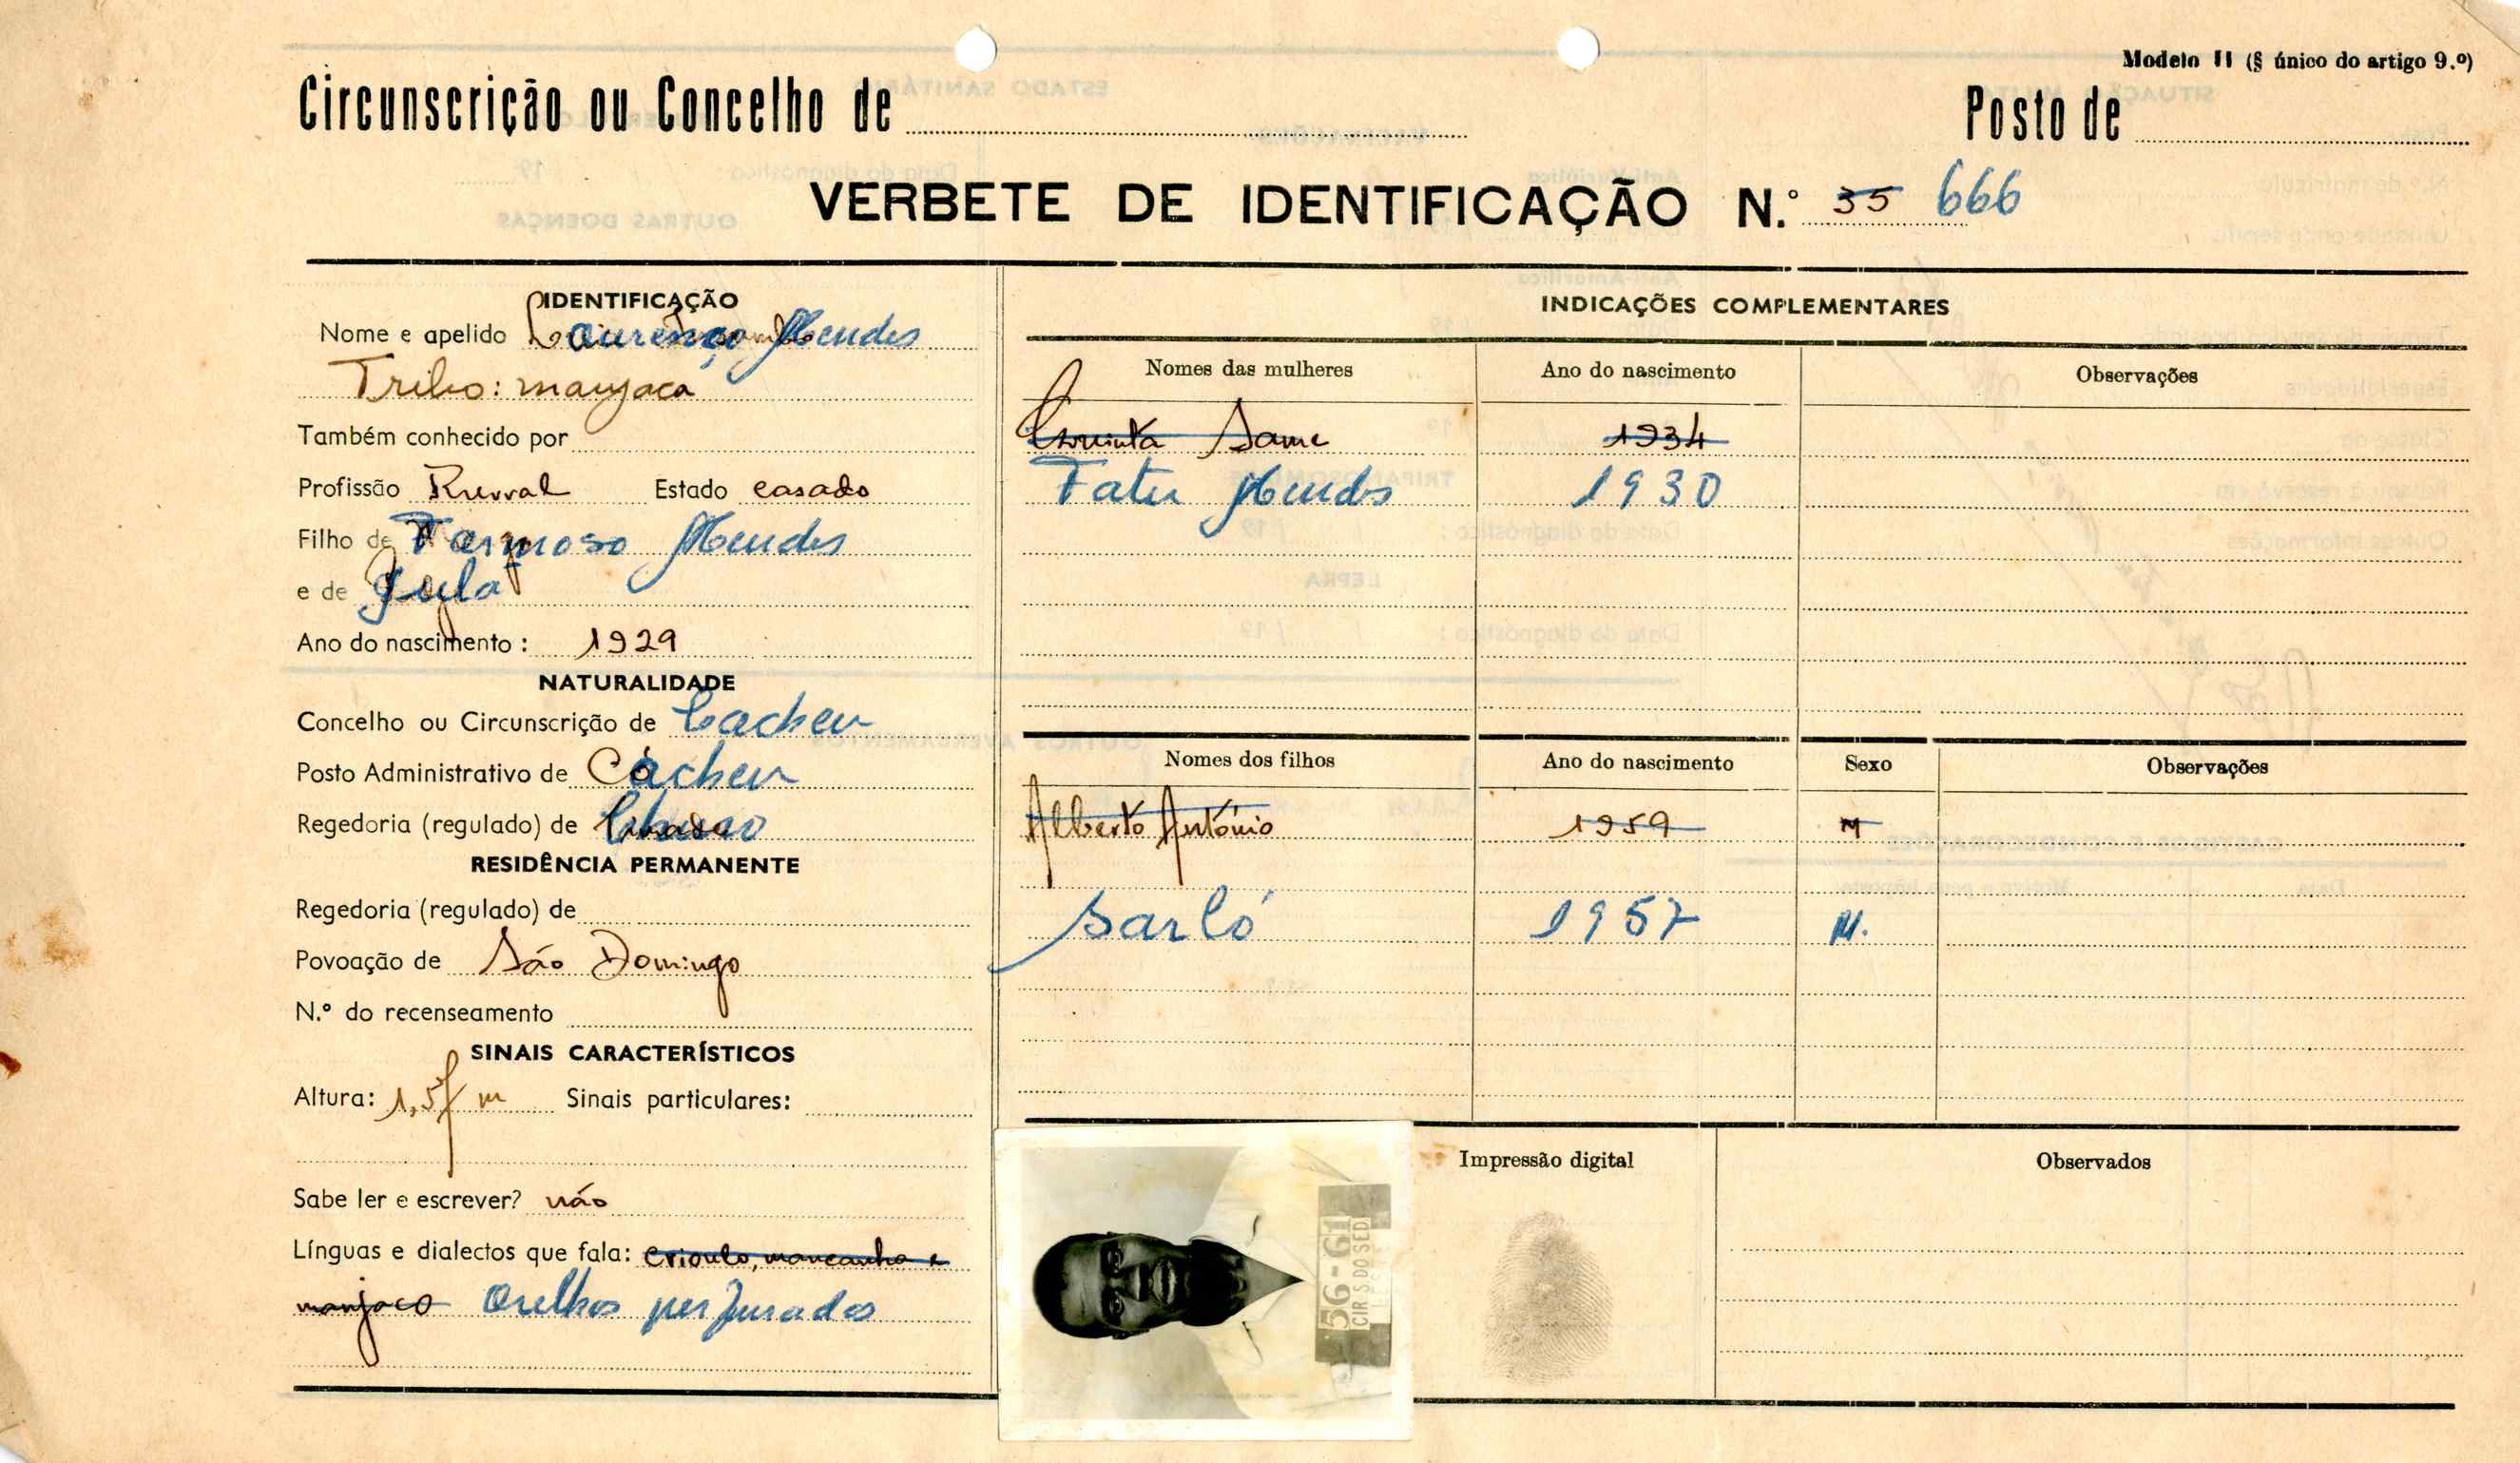 Modelo II (§ único do artigo 9.º)
Circunscrição ou Concelho de
Posto de
VERBETE DE IDENTIFICAÇÃO N.º 35 666
IDENTIFICAÇÃO
Nome e apelido Lourenço Mendes
Tribo: manjaca
Também conhecido por
Profissão Rural Estado casado
Filho de Formoso Mendes
e de Jula
Ano do nascimento: 1929
NATURALIDADE
Concelho ou Circunscrição de Cacheu
Posto Administrativo de Cacheu
Regedoria (regulado) de
RESIDÊNCIA PERMANENTE
Regedoria (regulado) de
Povoação de São Domingo
N.º do recenseamento
SINAIS CARACTERÍSTICOS
Altura: 1,57 m Sinais particulares:
Sabe ler e escrever? não
Línguas e dialectos que fala: crioulo, mancanha e
manjaco Orelhas perfuradas
INDICAÇÕES COMPLEMENTARES
Nomes das mulheres Ano do nascimento Observações
Same 1934
Mendes 1930
Nomes dos filhos Ano do nascimento Sexo Observações
Alberto António 1959 M
Sarló 1957 M.
56-61
CIR S DO SED
Impressão digital
Observados